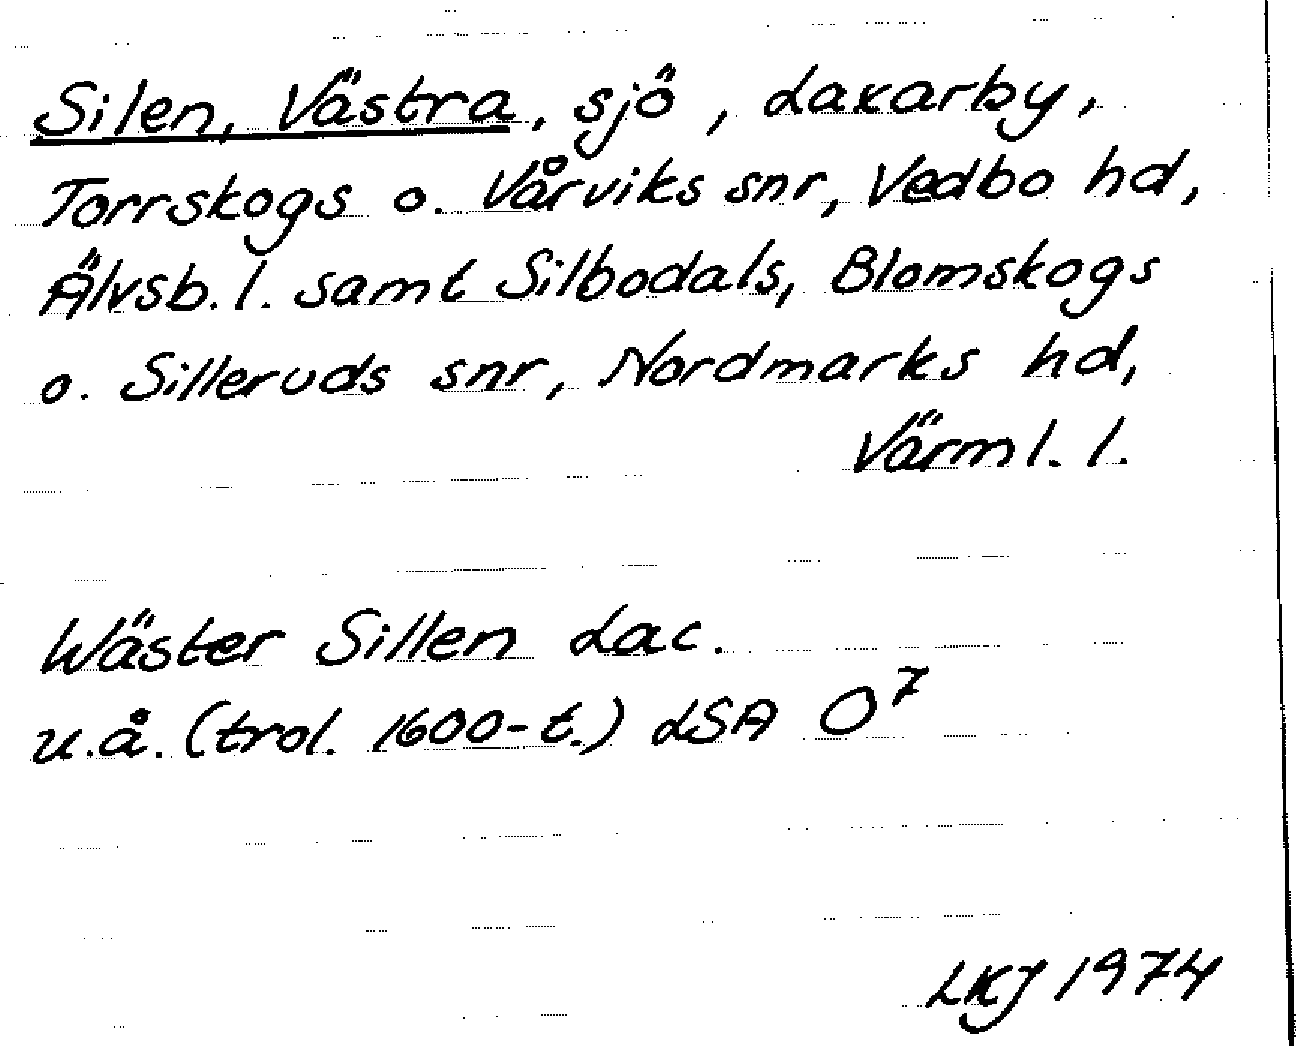 Silen, Västra, sjö, Laxarby,
Torrskogs o. Vårviks snr, Vedbo hd,
Älvsb. l. samt Silbodals, Blomskogs
o. Silleruds snr, Nordmarks hd,
Värml. l.
Wäster Sillen Lac.
u.å. (trol. 1600-t.) LSA O⁷
LKJ 1974